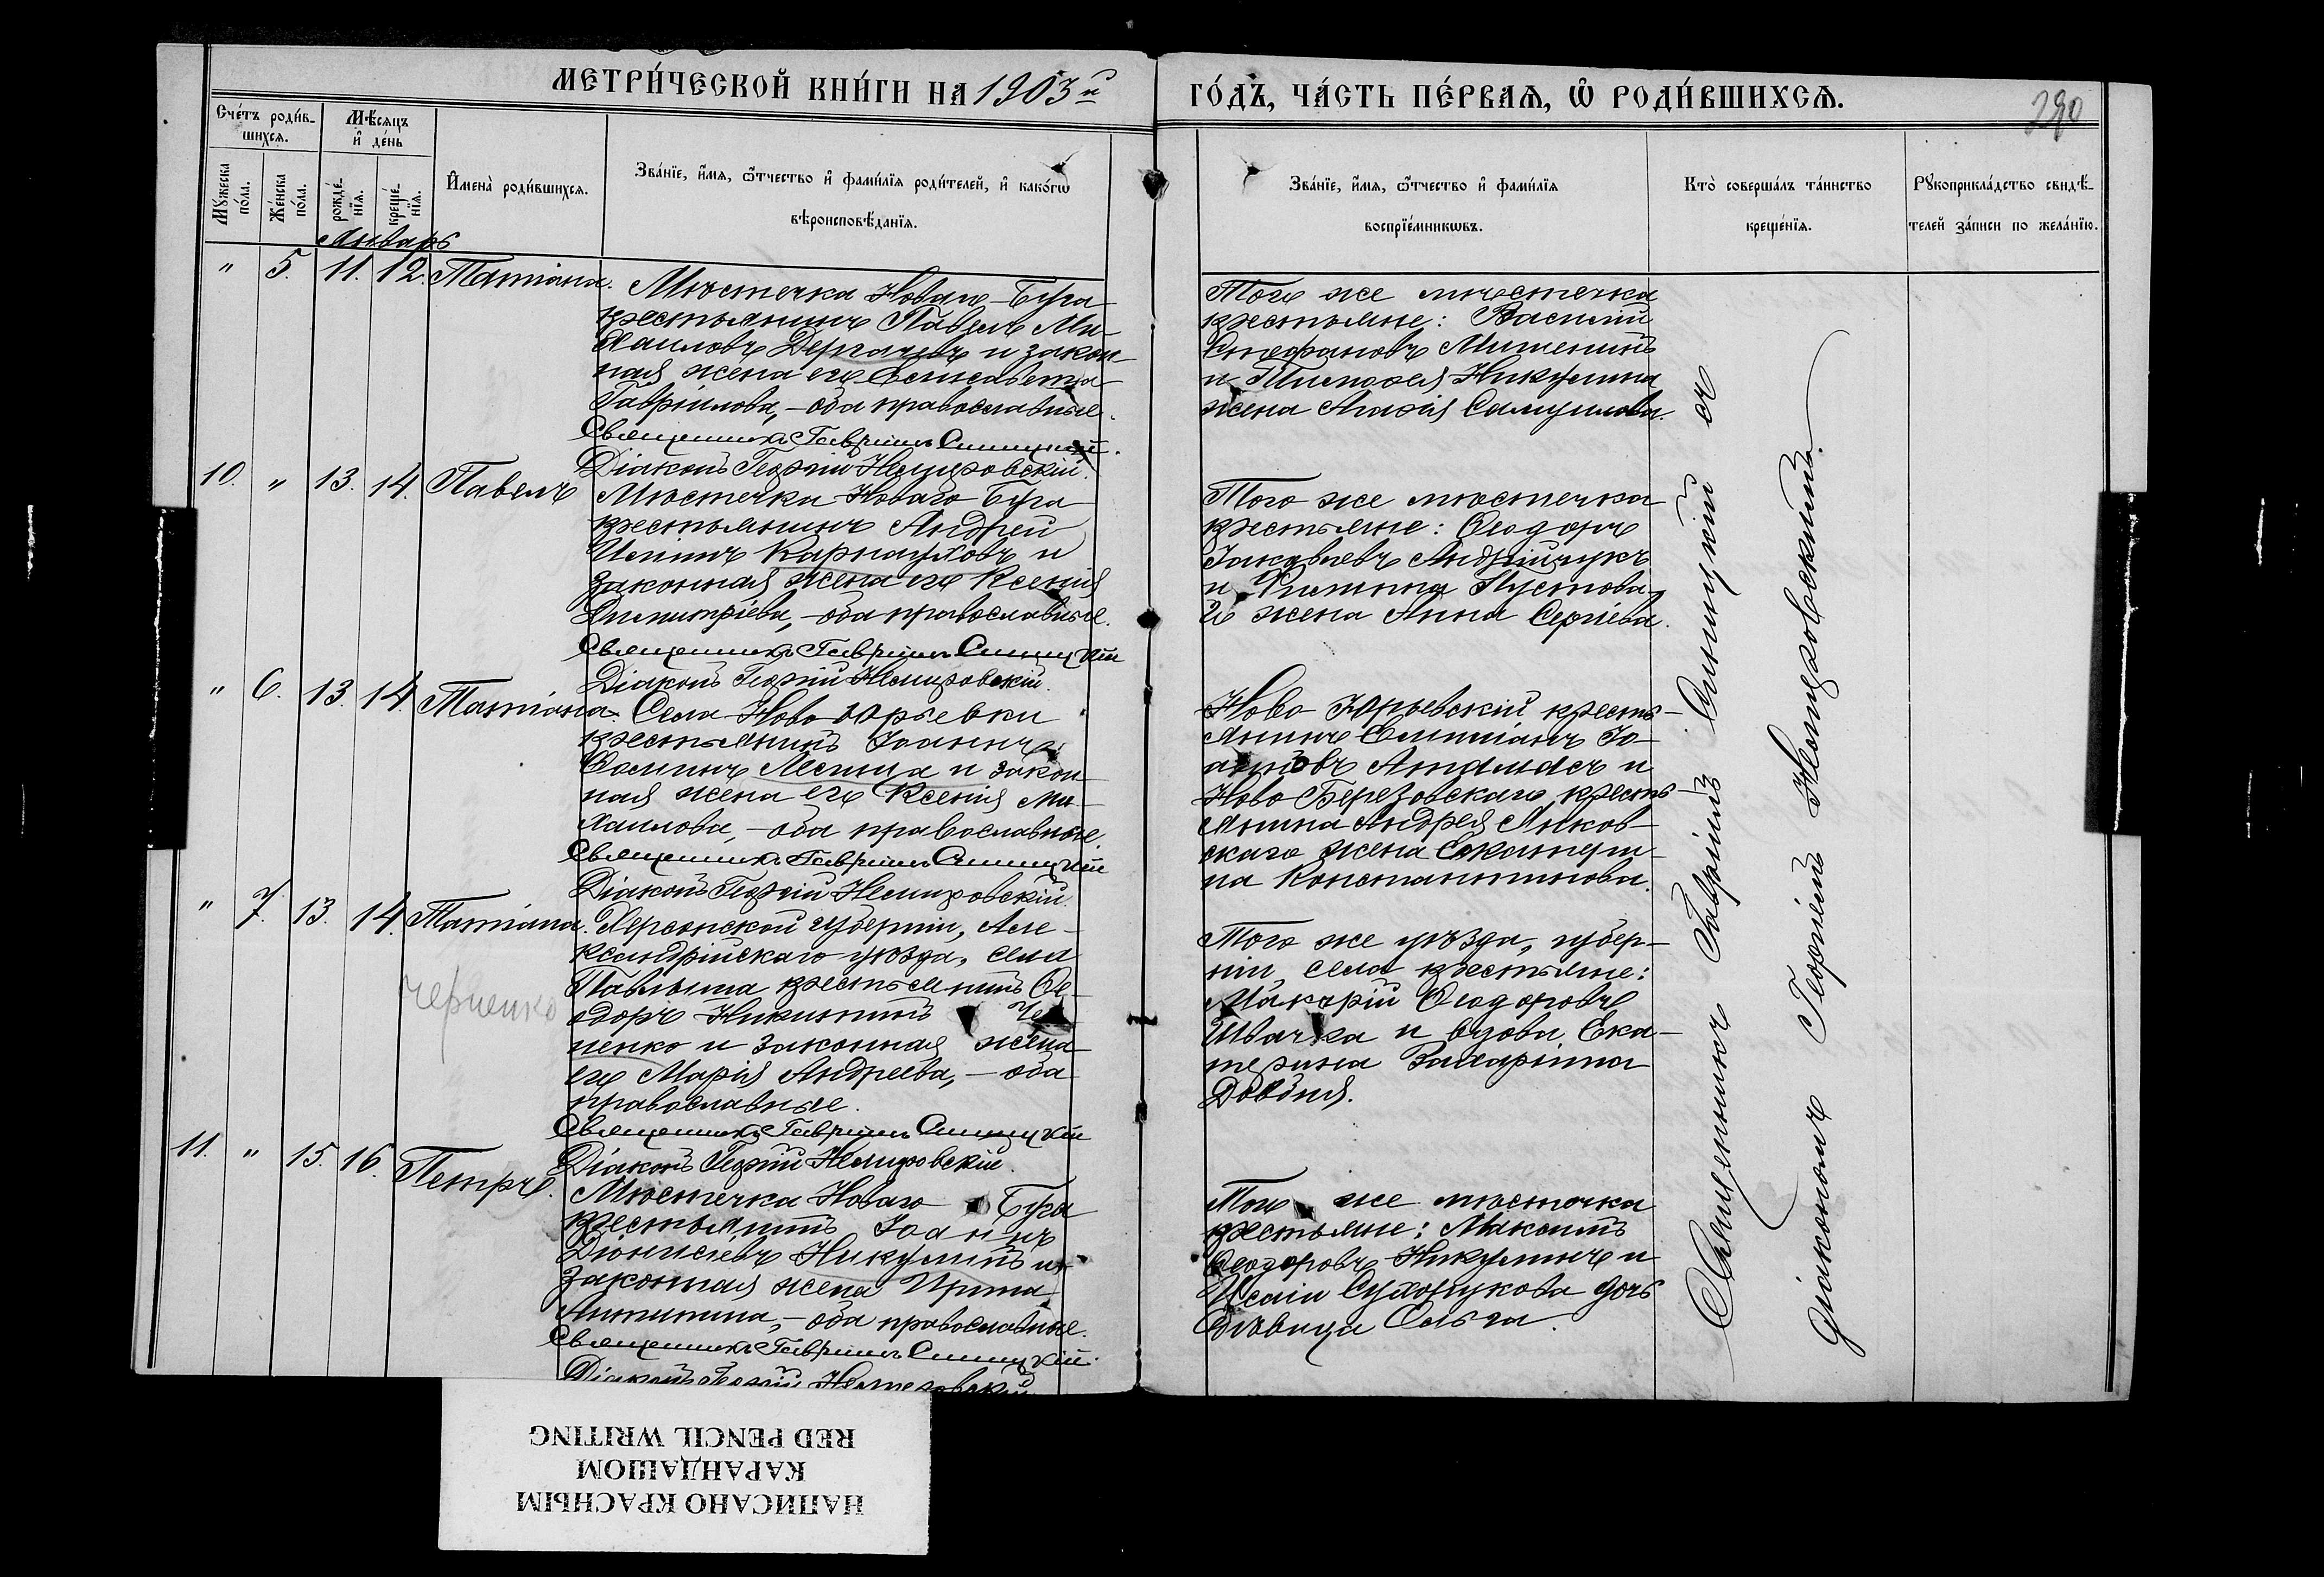 МЕТРИ́ЧЕСКОЙ КНИ́ГИ НА 1903й
ГО́ДЪ, ЧА́СТЬ ПЕ́РВАЯ, Ѡ РОДИ́ВШИХСЯ.
290
Сче́тъ роди́в-
шихся.
Мѣ́сяцъ
и҆ де́нь
Му́жеска
по́ла.
Же́нска
по́ла.
рожде́-
нїя.
креще́-
нїя.
И҆мена̀ роди́вшихся.
Зва́нїе, и҆́мя, ѻ҆́тчество и҆ фами́лїя роди́телей, и҆ како́гѡ
вѣроисповѣ́данїя.
Зва́нїе, и҆́мя, ѻ҆́тчество и҆ фами́лїя
воспрїе́мникѡвъ.
Кто̀ соверша́лъ та́инство
креще́нїя.
Рꙋкоприкла́дство свидѣ́-
телей за́писи по жела́нїю.
Январь
" 5. 11. 12. Татіана.
Мѣстечка Новаго-Буга
крестьянинъ Павелъ Ми-
хаиловъ Дергачевъ и закон-
ная жена его Елисавета
Гавріилова, - оба православные.
Священникъ Гавріилъ Синицкій.
Діаконъ Георгій Немировскій.
Того же мѣстечка
крестьяне: Василій
Стефановъ Мишенинъ
и Тимофея Никулина
жена Агафія Самуилова.
10. " 13. 14. Павелъ
Мѣстечка Новаго Буга
крестьянинъ Андрей
Карнауховъ и
законная жена его Ксенія
Димитріева, - оба православные.
Священникъ Гавріилъ Синицкій
Діаконъ Георгій Немировскій.
Того же мѣстечка
крестьяне: Ѳеодоръ
Іаковлевъ Андрійчукъ
и Филиппа Пустова-
го жена Анна Сергіева.
" 6. 13. 14. Татіана.
Села Ново-Юрьевки
крестьянинъ Іоаннъ
Ѳоминъ Лесица и закон-
ная жена его Ксенія Ми-
хаилова, - оба православные.
Священникъ Гавріилъ Синицкій
Діаконъ Георгій Немировскій.
Ново Юрьевскій кресть-
янинъ Емиліанъ Іо-
анновъ Атамасъ и
Ново Березовскаго кресть-
янина Андрея Янков-
скаго жена Екатери-
на Константинова.
" 7. 13. 14. Татіана.
черненко
Херсонской губерніи, Але-
ксандрійскаго уѣзда, села
Павлыша крестьянинъ Ѳе-
одоръ Никитинъ Че
ненко и законная жена
его Марія Андреева, - оба
православные.
Священникъ Гавріилъ Синицкій
Діаконъ Георгій Немировскій.
Того же уѣзда, губер-
ніи, села крестьяне:
Макарій Ѳеодоровъ
Швачка и вдова Ека-
терина Захаріина
Довбня.
11. " 15. 16. Петръ.
Мѣстечка Новаго Буга
крестьянинъ Іоаннъ
Діонисіевъ Никулинъ и
законная жена Ирина
Антипина, - оба православные.
Священникъ Гавріилъ Синицкій.
Діаконъ Георгій Немировскій
Того же мѣстечка
крестьяне: Максимъ
Ѳеодоровъ Никулинъ и
Исаіи Сухорукова дочь
дѣвица Ольга.
Священникъ Гавріилъ Синицкій съ
діакономъ Георгіемъ Немировскимъ.
НАПИСАНО КРАСНЫМ
КАРАНДАШОМ
RED PENCIL WRITING